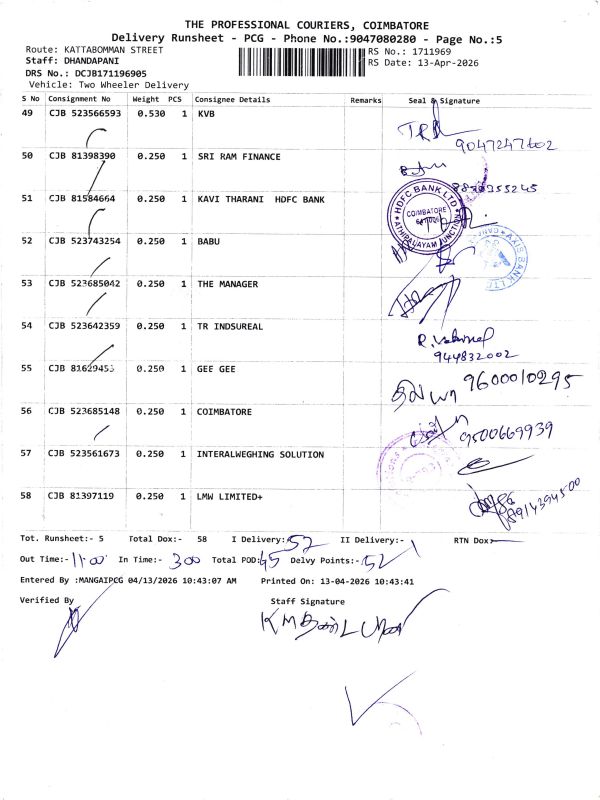 THE PROFESSIONAL COURIERS, COIMBATORE
Delivery Runsheet - PCG - Phone No.:9047080280 - Page No.:5
Route: KATTABOMMAN STREET
RS No.: 1711969
Staff: DHANDAPANI
RS Date: 13-Apr-2026
DRS No.: DCJB171196905
Vehicle: Two Wheeler Delivery
S No Consignment No Weight PCS Consignee Details Remarks Seal & Signature
49 CJB 523566593 0.530 1 KVB
9047247602
50 CJB 81398390 0.250 1 SRI RAM FINANCE
51 CJB 81584664 0.250 1 KAVI THARANI HDFC BANK
HDFC BANK LTD
COIMBATORE
ATHIPALAYAM JUNCTION
52 CJB 523743254 0.250 1 BABU
AXIS BANK LTD
53 CJB 523685042 0.250 1 THE MANAGER
54 CJB 523642359 0.250 1 TR INDSUREAL
944832002
55 CJB 81629453 0.250 1 GEE GEE
9600010295
56 CJB 523685148 0.250 1 COIMBATORE
9500669939
57 CJB 523561673 0.250 1 INTERALWEGHING SOLUTION
58 CJB 81397119 0.250 1 LMW LIMITED+
8914394500
Tot. Runsheet:- 5 Total Dox:- 58 I Delivery:- 52 II Delivery:- 1 RTN Dox:-
Out Time:- 11:00 In Time:- 300 Total POD: 65 Delvy Points:- 52
Entered By :MANGAIPCG 04/13/2026 10:43:07 AM Printed On: 13-04-2026 10:43:41
Verified By Staff Signature